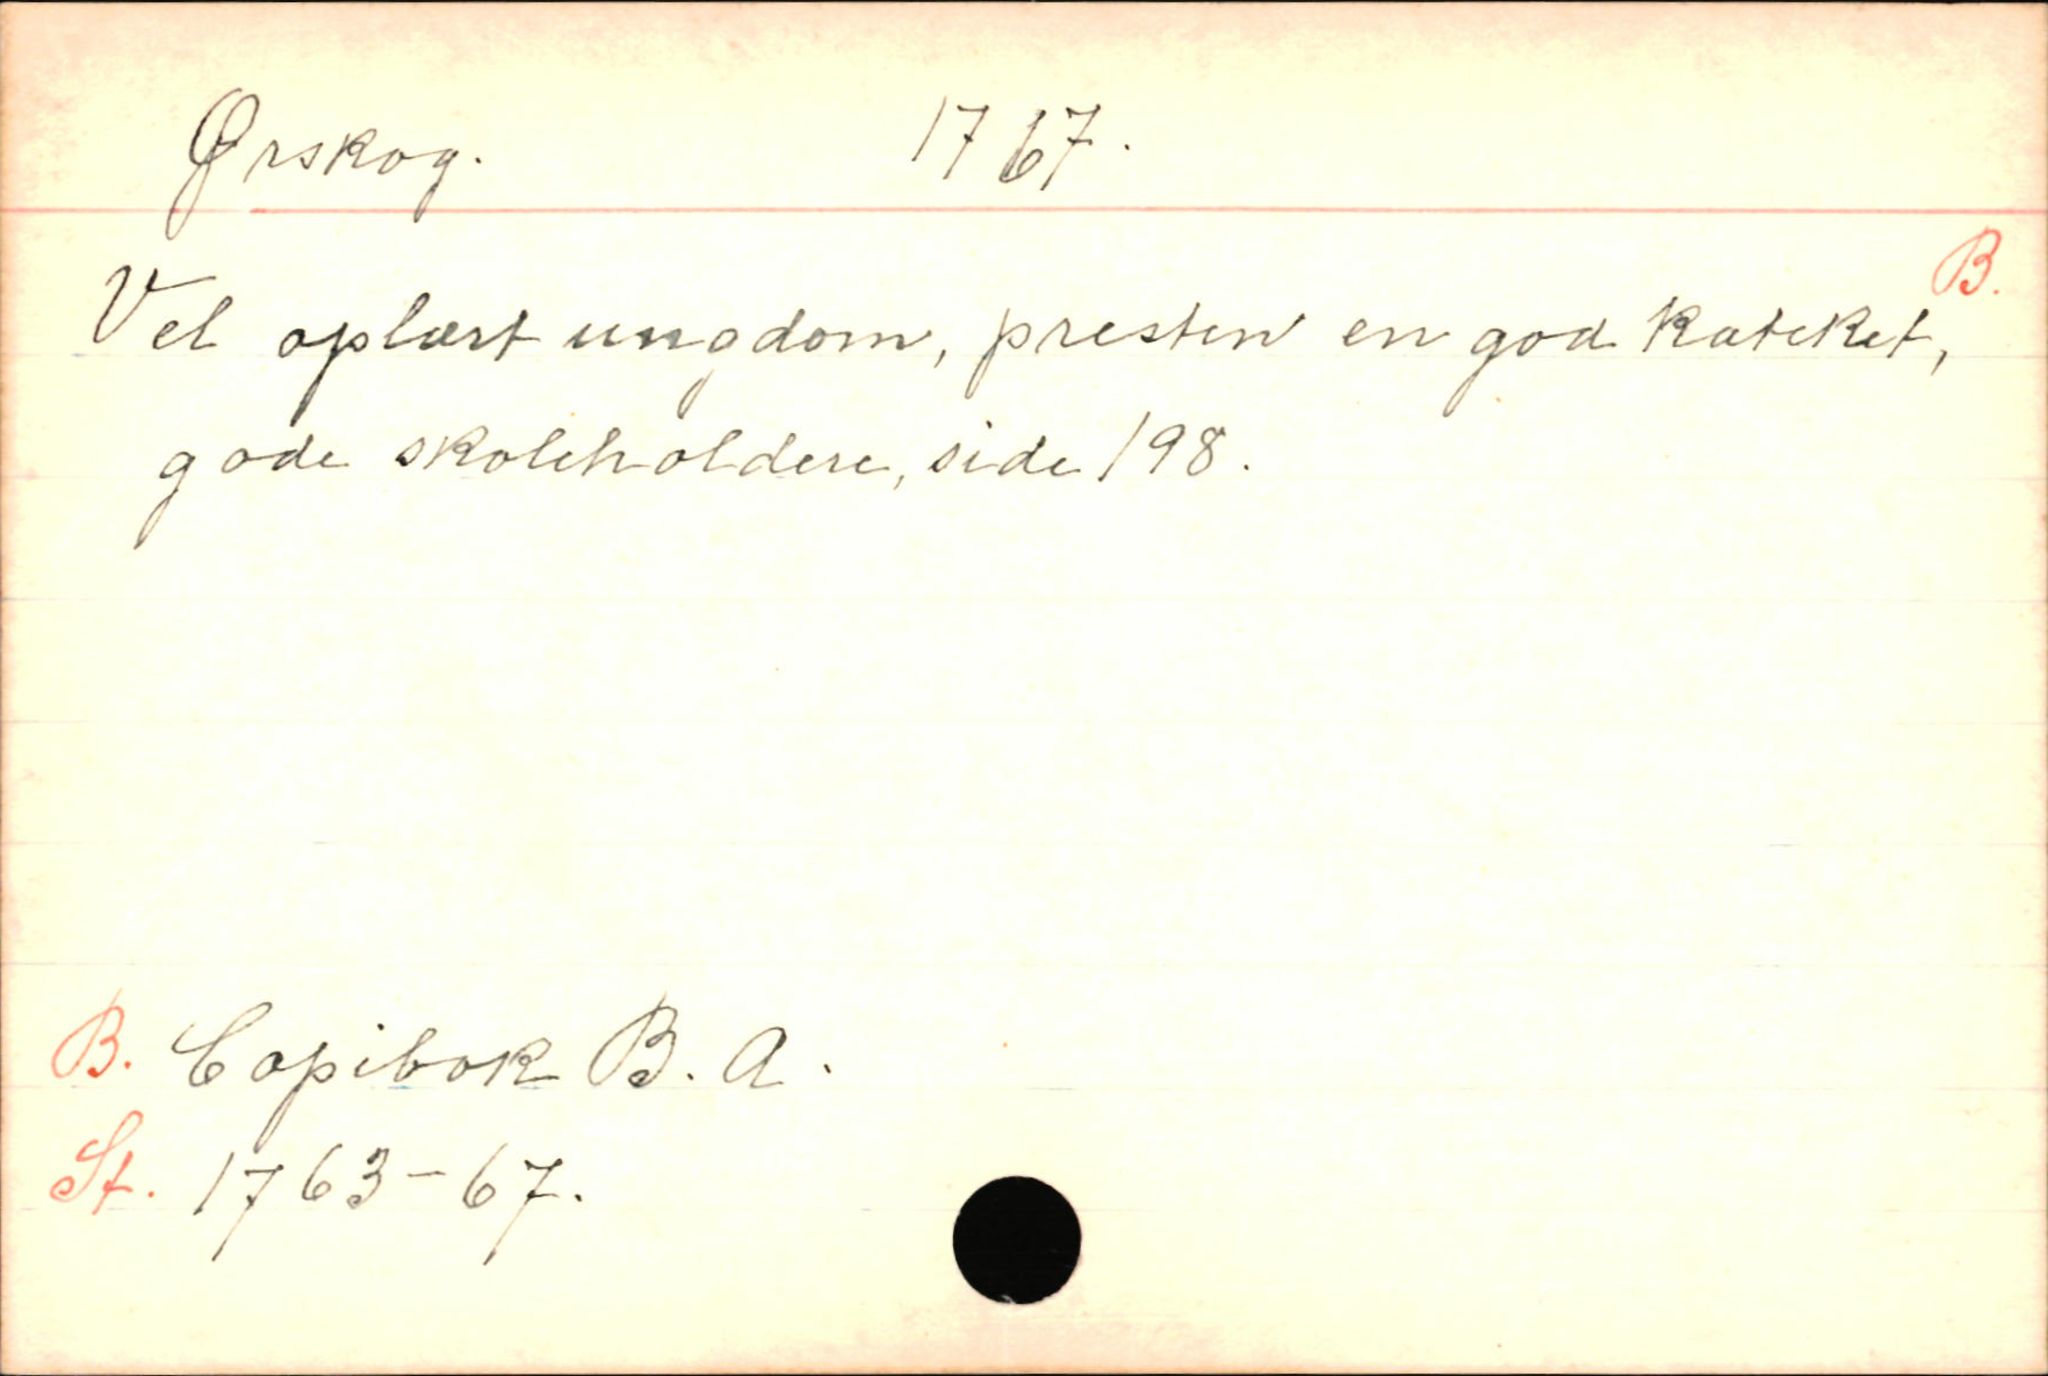 Ørskog. 1767.
B.
Vel oplært ungdom, presten en god kateket,
gode skoleholdere, side 198.
B. Copibok B. A.
St. 1763-67.